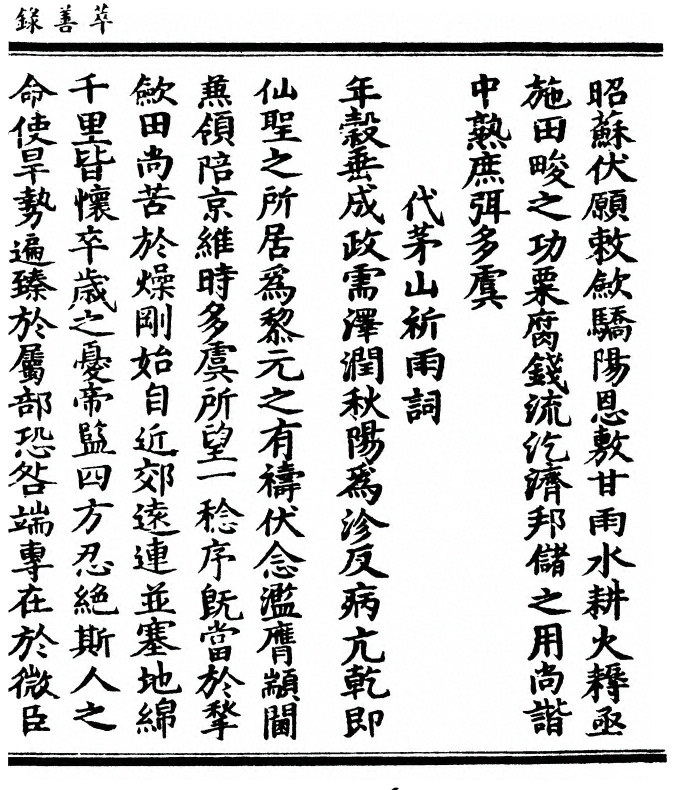 錄善萃
昭蘇伏願敕歛驕陽恩敷甘雨水耕火耨亟
施田畯之功粟腐錢流汔濟邦儲之用尚諧
中熟庶弭多虞
代茅山祈雨詞
年穀垂成政需澤潤秋陽爲沴反病亢乾即
仙聖之所居爲黎元之有禱伏念濫膺顓閫
兼領陪京維時多虞所望一稔序旣當於揫
歛田尚苦於燥剛始自近郊遠連並塞地綿
千里皆懷卒歲之憂帝監四方忍絕斯人之
命使旱勢遍臻於屬部恐咎端專在於微臣